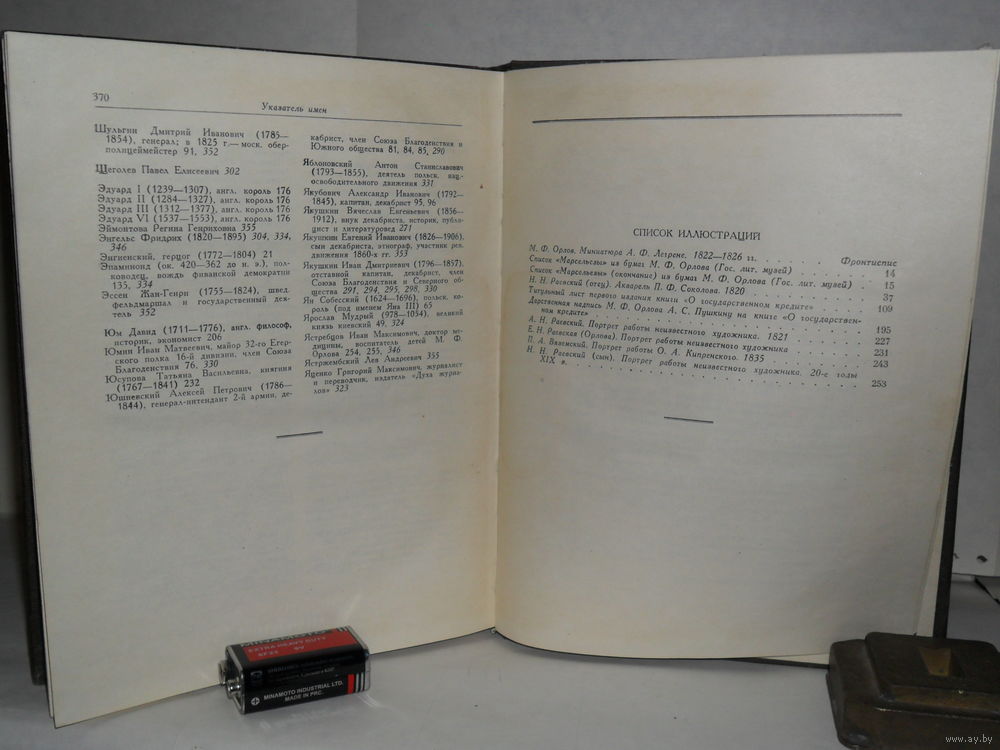 370
Указатель имен
Шульгин Дмитрий Иванович (1785—
1854), генерал; в 1825 г.— моск. обер-
полицеймейстер 91, 352
Щеголев Павел Елисеевич 302
Эдуард I (1239—1307), англ. король 176
Эдуард II (1284—1327), англ. король 176
Эдуард III (1312—1377), англ. король 176
Эдуард VI (1537—1553), англ. король 176
Эймонтова Регина Генриховна 355
Энгельс Фридрих (1820—1895) 304, 334,
346
Энгиенский, герцог (1772—1804) 21
Эпаминонд (ок. 420—362 до н. э.), пол-
ководец, вождь фиванской демократии
135, 334
Эссен Жан-Генри (1755—1824), швед.
фельдмаршал и государственный дея-
тель 352
Юм Давид (1711—1776), англ. философ,
историк, экономист 206
Юмин Иван Матвеевич, майор 32-го Егер-
ского полка 16-й дивизии, член Союза
Благоденствия 76, 330
Юсупова Татьяна Васильевна, княгиня
(1767—1841) 232
Юшневский Алексей Петрович (1786—
1844), генерал-интендант 2-й армии, де-
кабрист, член Союза Благоденствия и
Южного общества 81, 84, 85, 290
Яблоновский Антон Станиславович
(1793—1855), деятель польск. нац.-
освободительного движения 331
Якубович Александр Иванович (1792—
1845), капитан, декабрист 95, 96
Якушкин Вячеслав Евгеньевич (1856—
1912), внук декабриста, историк, публи-
цист и литературовед 271
Якушкин Евгений Иванович (1826—1906),
сын декабриста, этнограф, участник рев.
движения 1860-х гг. 353
Якушкин Иван Дмитриевич (1796—1857),
отставной капитан, декабрист, член
Союза Благоденствия и Северного об-
щества 291, 294, 295, 298, 330
Ян Собесский (1624—1696), польск. ко-
роль (под именем Ян III) 65
Ярослав Мудрый (978—1054), великий
князь киевский 49, 324
Ястребцов Иван Максимович, доктор ме-
дицины, воспитатель детей М. Ф.
Орлова 254, 255, 346
Ястржембский Лев Андреевич 355
Яценко Григорий Максимович, журналист
и переводчик, издатель «Духа журна-
лов» 323
СПИСОК ИЛЛЮСТРАЦИЙ
М. Ф. Орлов. Миниатюра А. Ф. Лагрене. 1822—1826 гг. Фронтиспис
Список «Марсельезы» из бумаг М. Ф. Орлова (Гос. лит. музей) 14
Список «Марсельезы» (окончание) из бумаг М. Ф. Орлова (Гос. лит. музей) 15
Н. Н. Раевский (отец). Акварель П. Ф. Соколова. 1820 37
Титульный лист первого издания книги «О государственном кредите» 109
Дарственная надпись М. Ф. Орлова А. С. Пушкину на книге «О государствен-
ном кредите» 195
А. Н. Раевский. Портрет работы неизвестного художника. 1821 227
Е. Н. Раевская (Орлова). Портрет работы неизвестного художника 231
П. А. Вяземский. Портрет работы О. А. Кипренского. 1835 243
Н. Н. Раевский (сын). Портрет работы неизвестного художника. 20-е годы
XIX в. 253
EXTRA HEAVY DUTY
6F22 9V
MINAMOTO INDUSTRIAL LTD.
MADE IN PRC.
www.ay.by